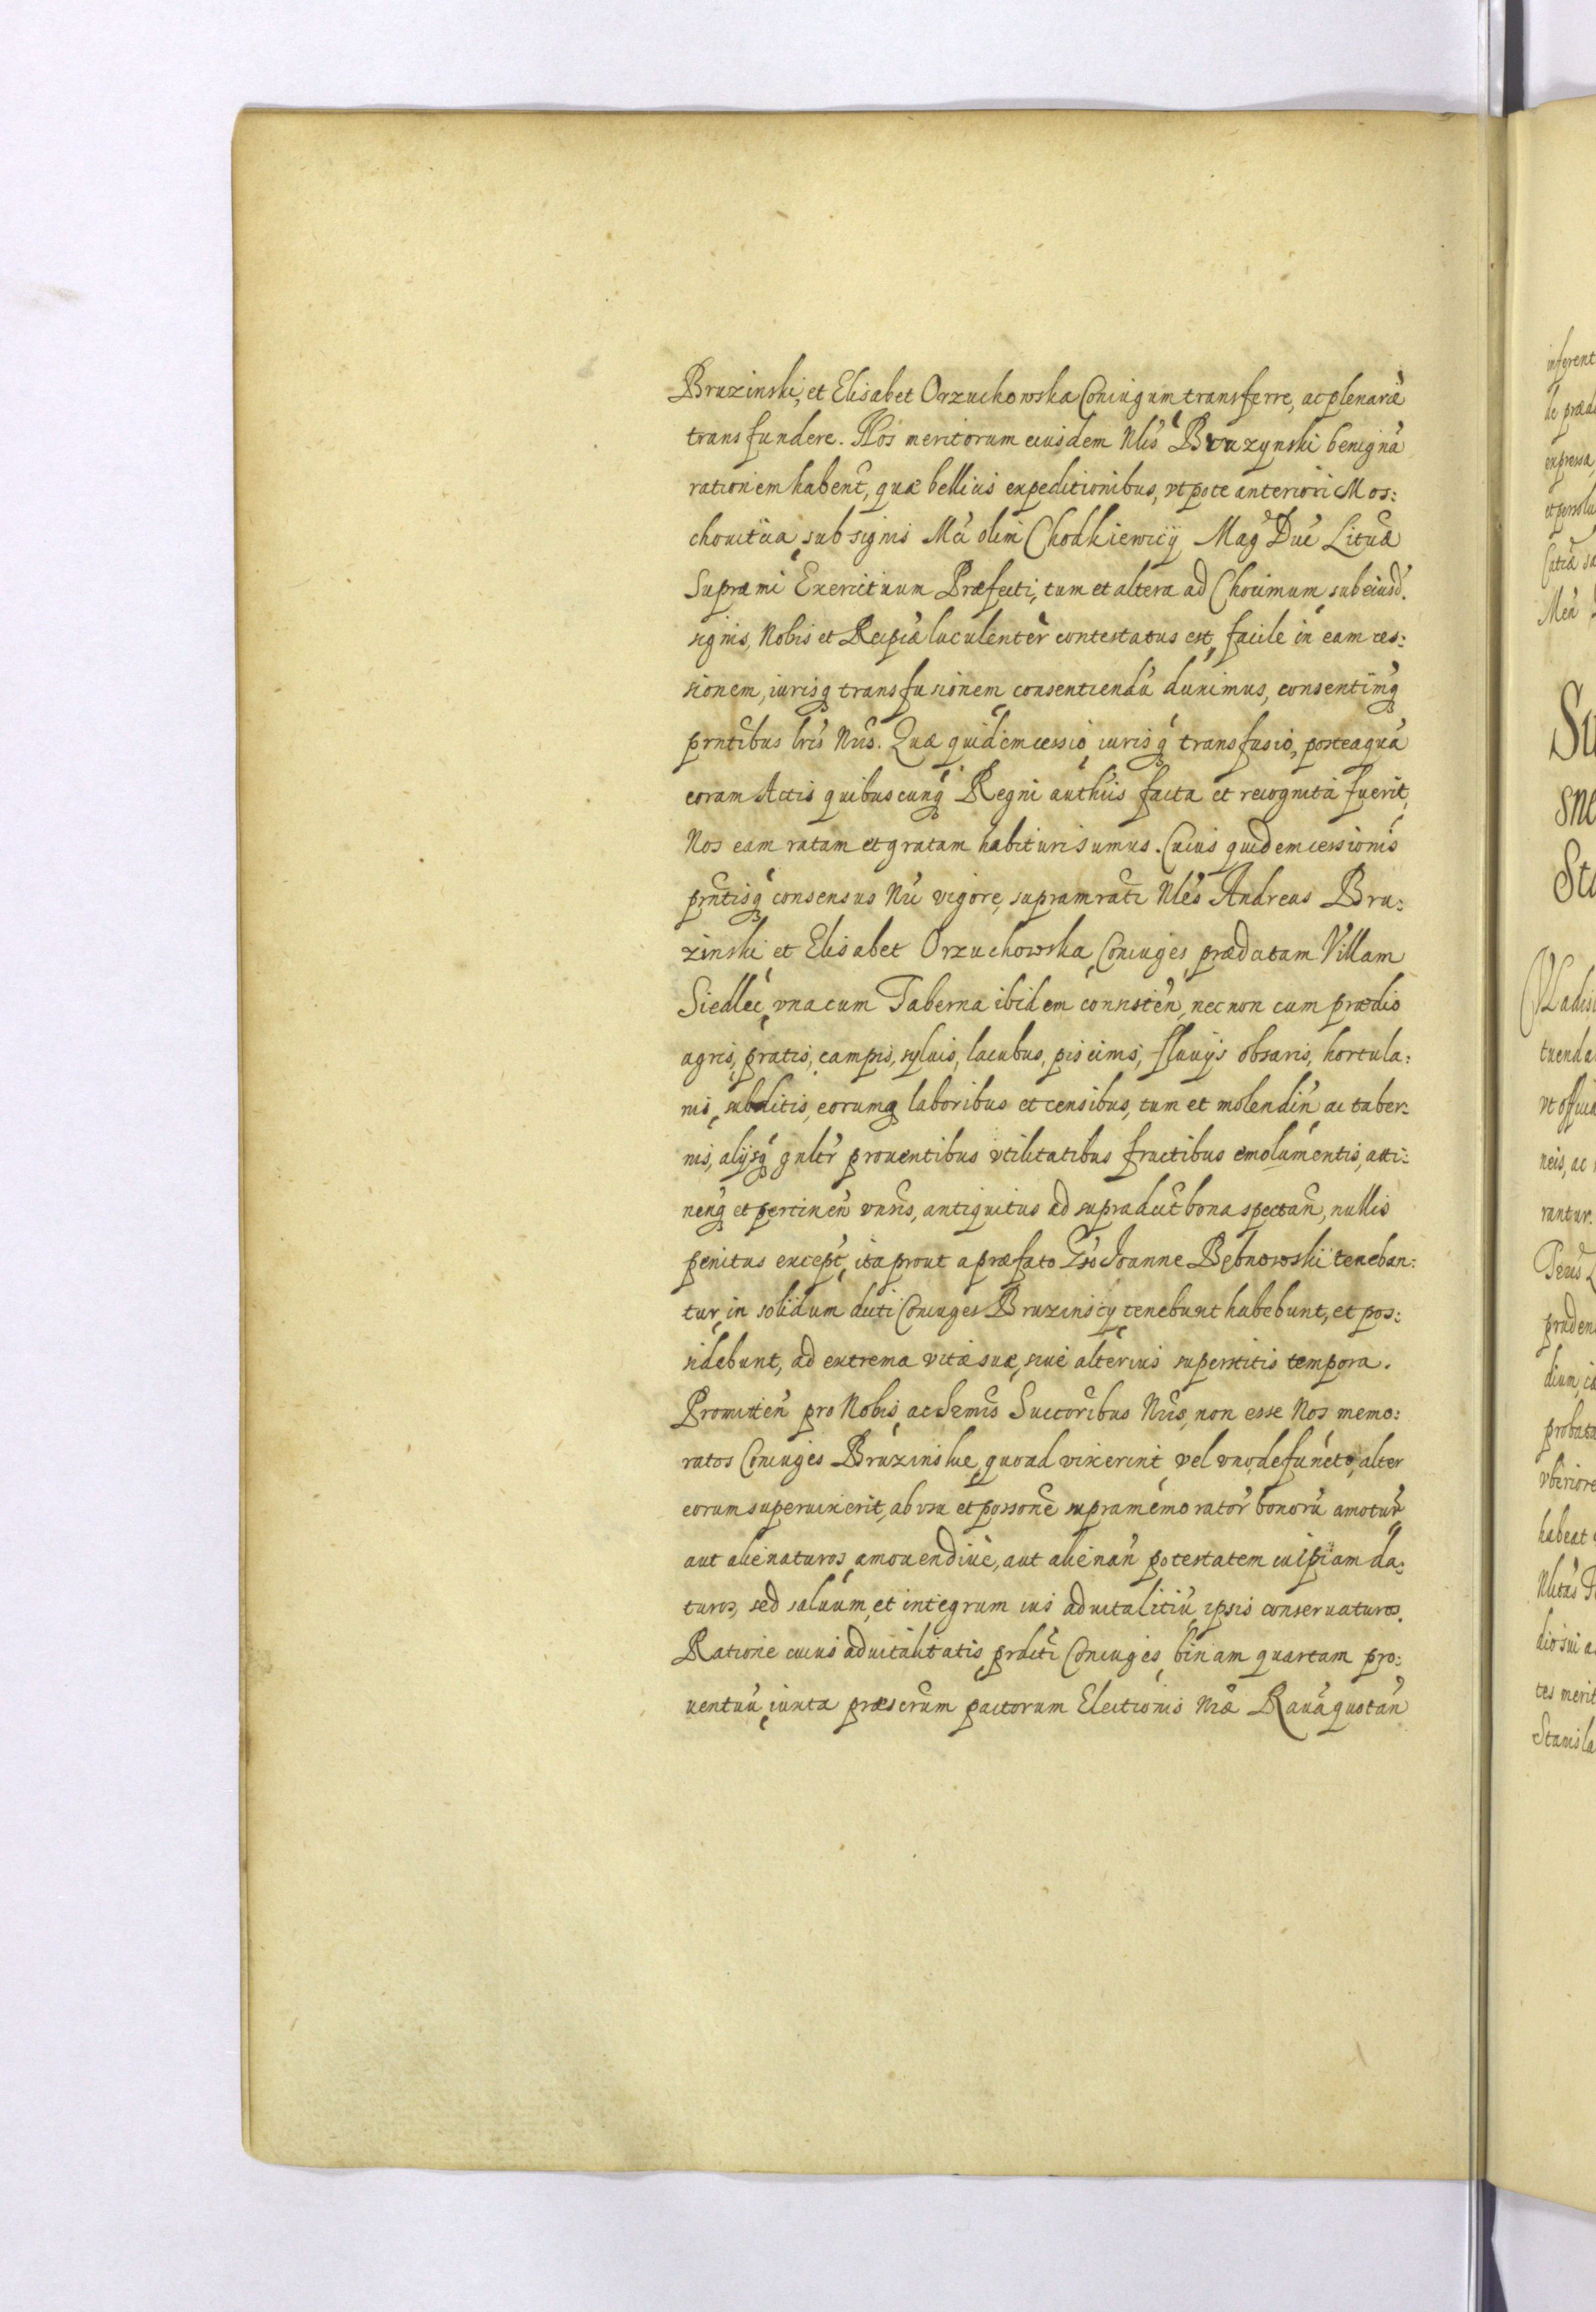 Bruzinski, et Elisabet Orzuchowska Coniugum transferre, ac plenarie
transfundere. Nos meritorum eiusdem Nlis Bruzynski benigna
rationem habent, quæ bellicis expeditionibus, vtpote anteriori Mos:
chouitica, sub signis Mci olim Chodkiewicij Mag Duc Lituæ
Supræmi Exercituum Præfecti, tum et altera ad Chocimum, sub eiusd.
signis, Nobis et Reipcæ luculenter contestatus est, facile in eam ces:
sionem, iurisq transfusionem consentiendu duximus, consentimq
prntibus lris Nris. Quæ quidem cessio, iurisq transfusio, posteaqua
coram Actis quibuscunq Regni authcis facta et recognita fuerit,
Nos eam ratam et gratam habituri sumus. Cuius quidem cessionis
prntisq consensus Nri vigore, supramrati Nles Andreas Bru:
zinski et Elisabet Orzuchowska, Coniuges, prædictam Villam
Siedlec, vna cum Taberna ibidem consisten, nec non cum prædio
agris, pratis, campis, syluis, lacubus, piscinis, fluuijs obsaris, hortula:
nis, subditis, eorumq laboribus et censibus, tum et molendin ac taber:
nis, alijsq gnltr prouentibus vtilitatibus fructibus emolumentis, atti:
nenq et pertinen vnris, antiquitus ad supradict bona spectan, nullis
penitus except, ita prout a præfato Gso Joanne Bębnowski teneban:
tur, in solidum dicti Coniuges Bruzinscy tenebunt habebunt, et pos:
sidebunt, ad extrema vitæ suæ, siue alterius superstitis tempora.
Promitten pro Nobis, ac Sermis Succoribus Nris, non esse Nos memo:
ratos Coniuges Bruzinskie, quoad vixerint, vel vno, defuncto, alter
eorum superuixerit, ab vsu et possone supramemorator bonoru amotur
aut alienaturos, amouendiue, aut alienan potestatem cuipiam da:
turos, sed saluum, et integrum ius aduitalitiu, ipsis conseruaturos.
Ratione cuius aduitalitatis, prdicti Coniuges, binam quartam pro:
uentuu, iuxta præscrum pactorum Electionis Nræ Rauã quotan
inferent
de præd
expressa
Mea
Vladis
tuenda
neis, ac
rantur.
pruden
dium,
probata
vberiore
habeat
dio sui a
tes merit
Stanisla